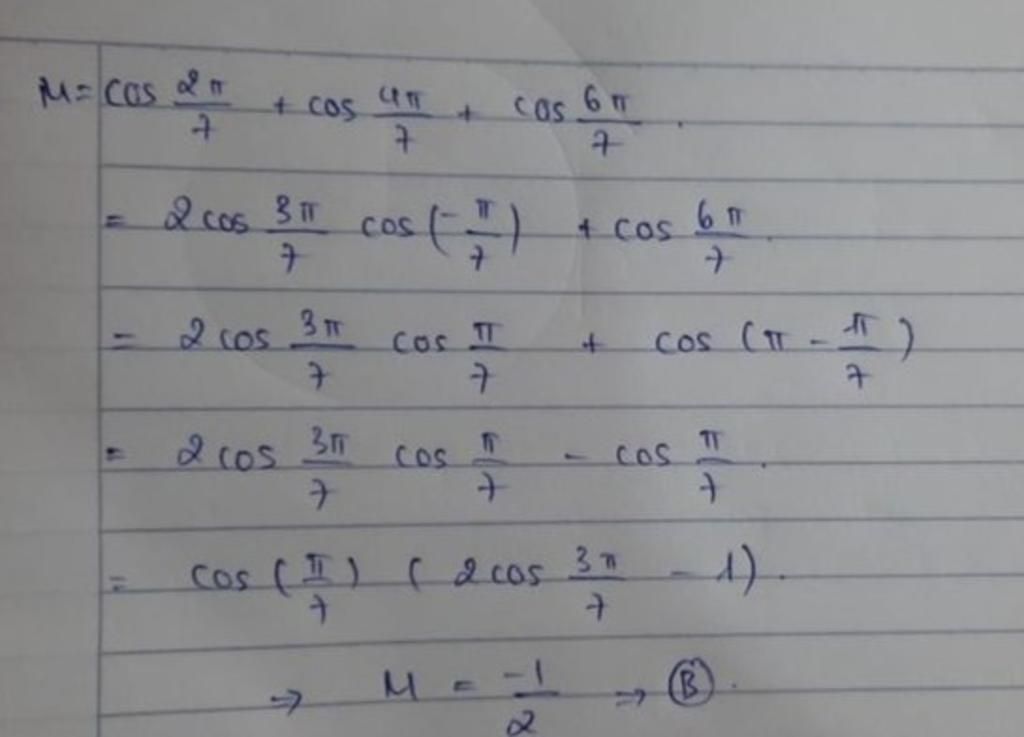 M = cos 2π/7 + cos 4π/7 + cos 6π/7.
= 2 cos 3π/7 cos(-π/7) + cos 6π/7.
= 2 cos 3π/7 cos π/7 + cos (π - π/7)
= 2 cos 3π/7 cos π/7 - cos π/7.
= cos (π/7) (2 cos 3π/7 - 1).
⇒ M = -1/2 ⇒ Ⓑ.